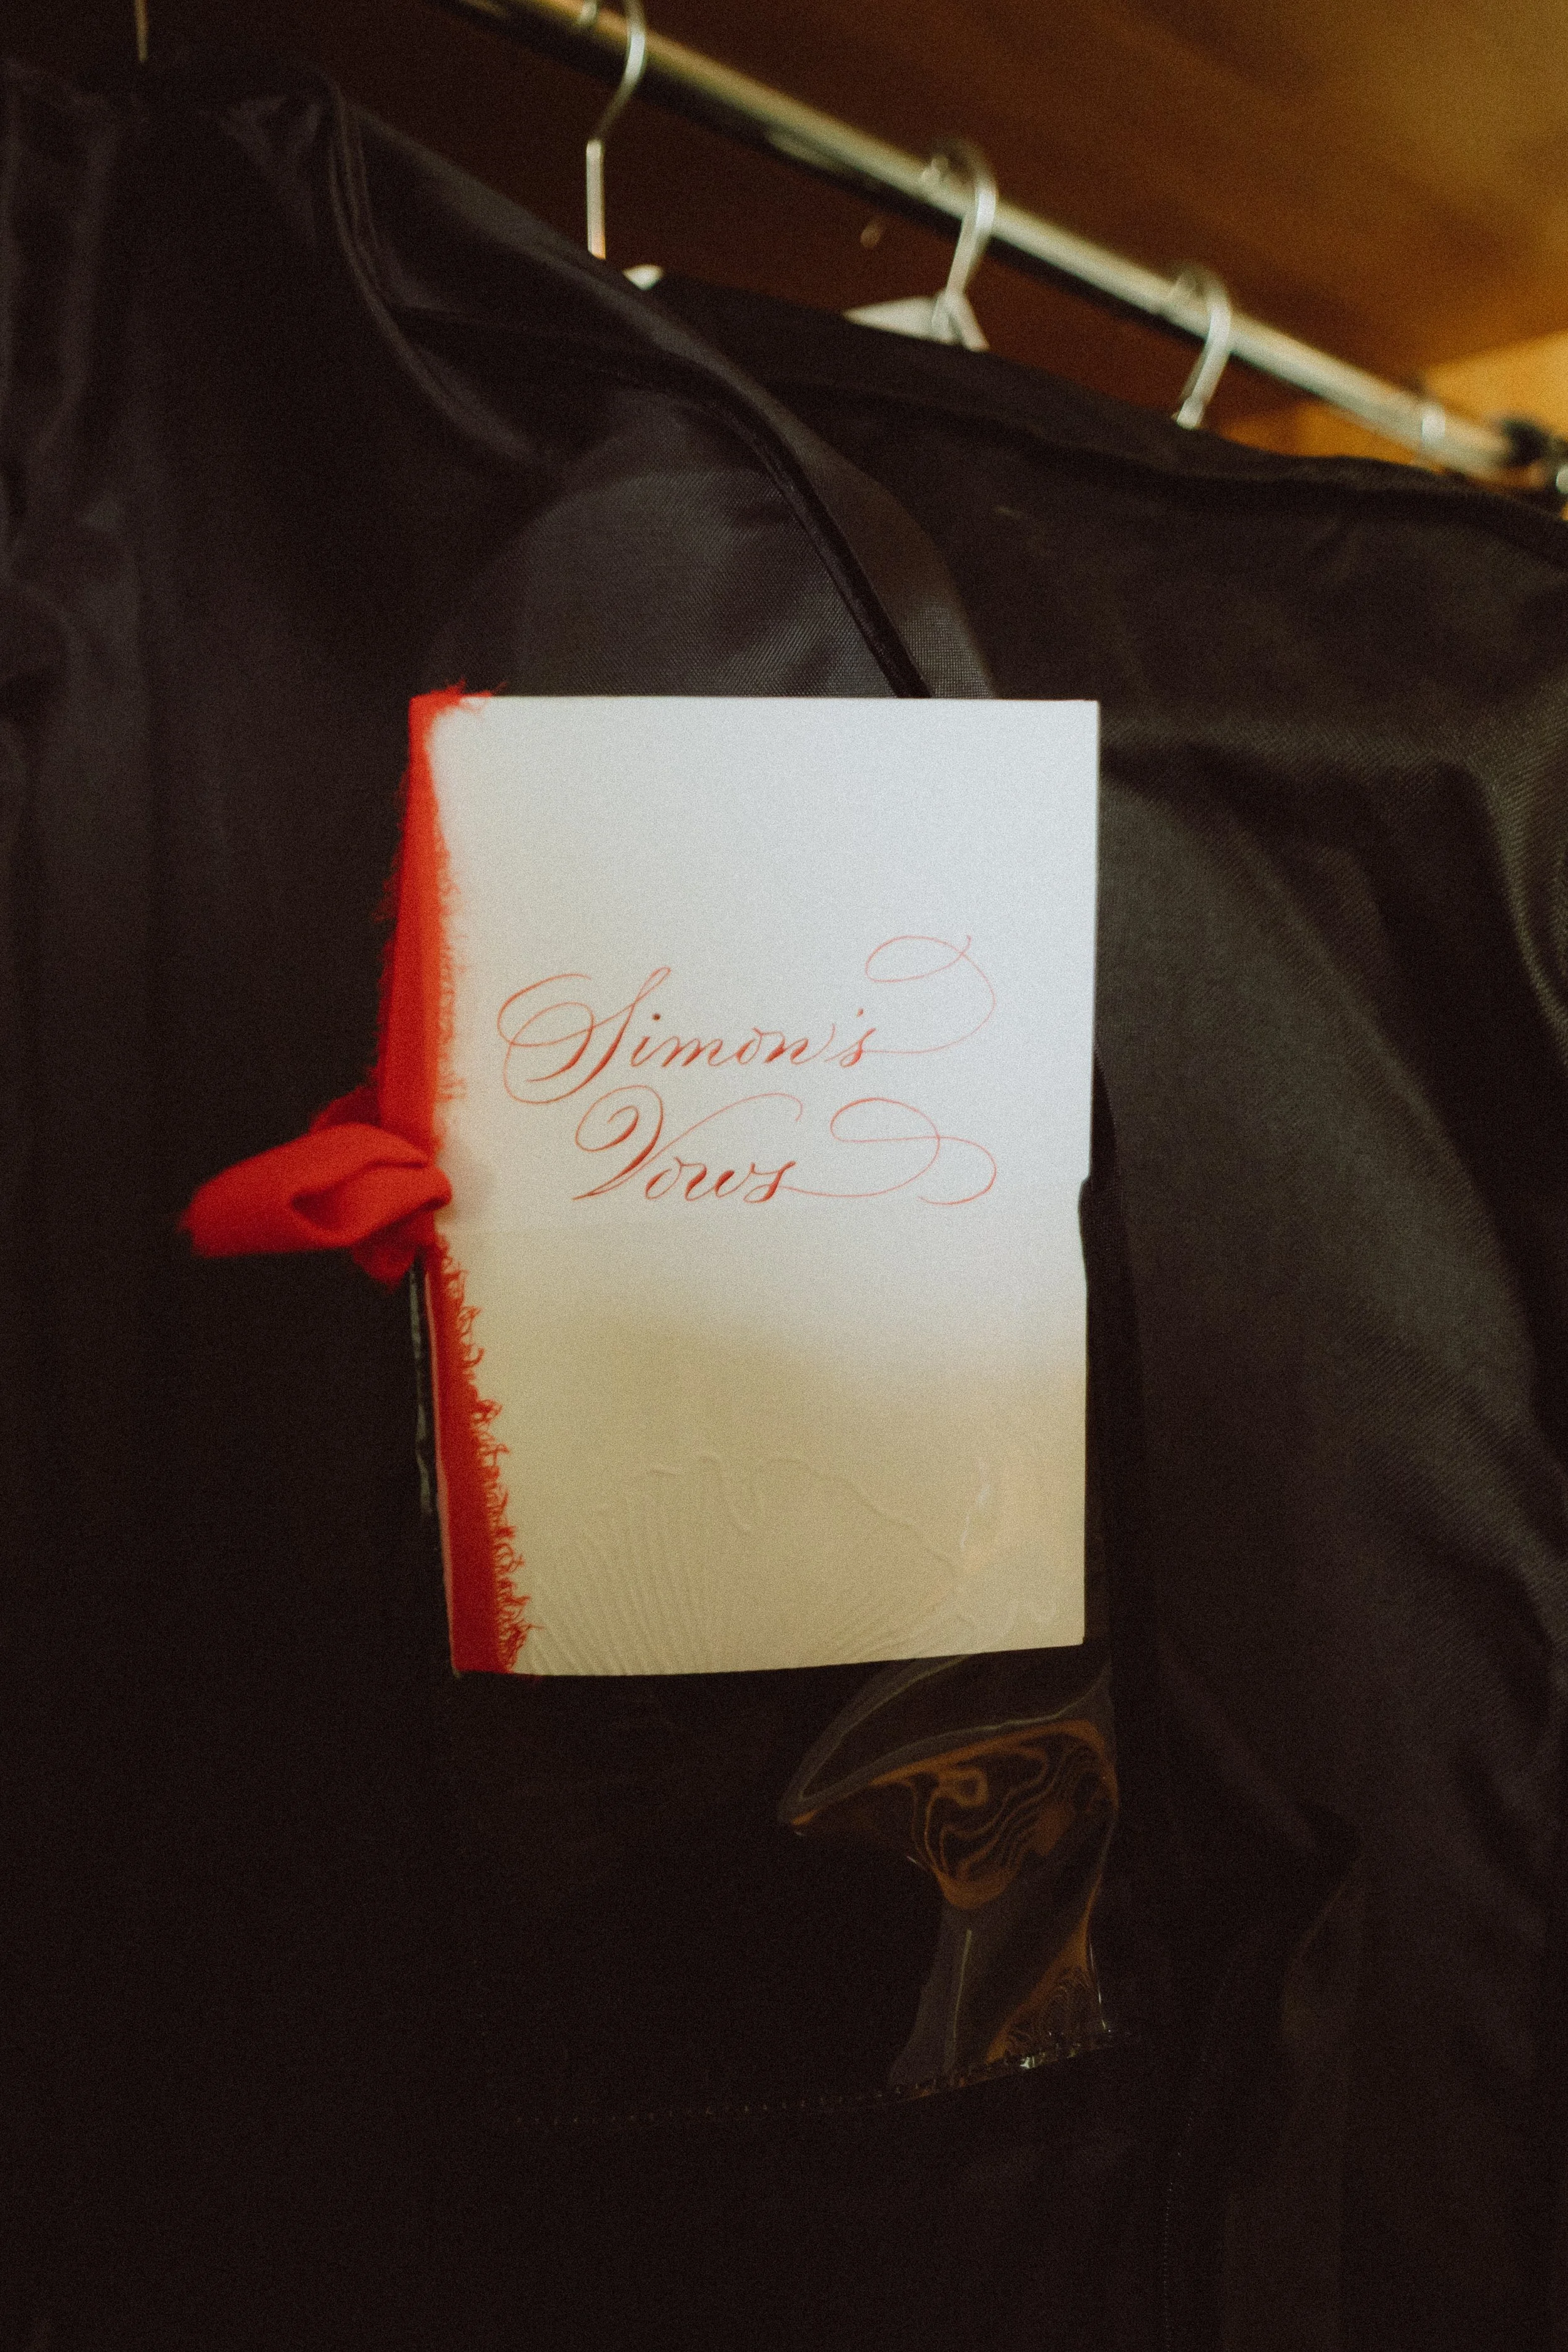 Simon's
Vows